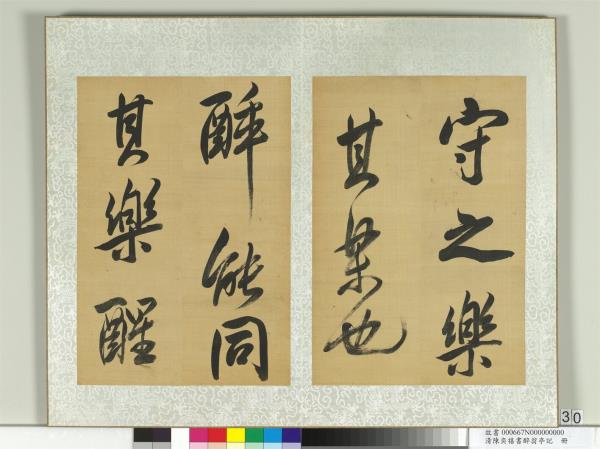 守之樂
其樂也
醉能同
其樂醒
30
故書 000667N000000000
清陳奕禧書醉翁亭記 冊